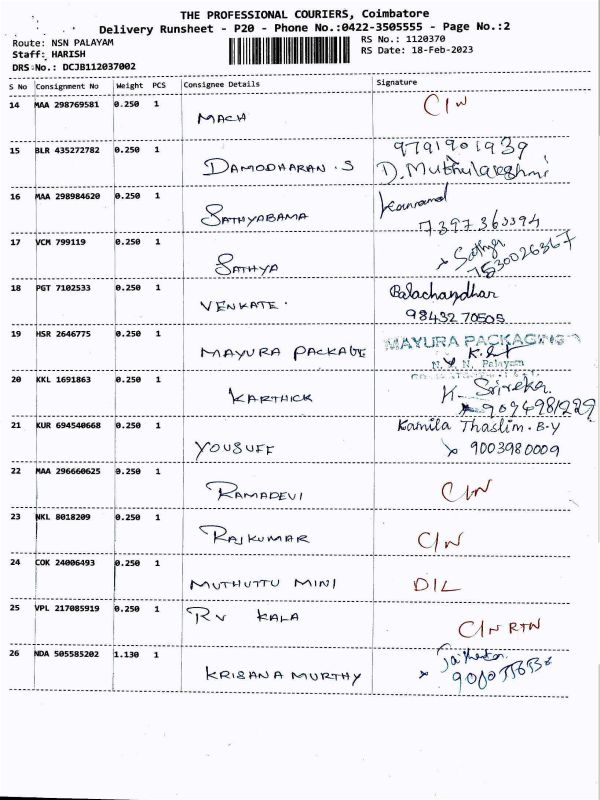 THE PROFESSIONAL COURIERS, Coimbatore
Delivery Runsheet - P20 - Phone No.:0422-3505555 - Page No.:2
Route: NSN PALAYAM
RS No.: 1120370
Staff: HARISH
RS Date: 18-Feb-2023
DRS No.: DCJB112037002
S No Consignment No Weight PCS Consignee Details Signature
14 MAA 298769581 0.250 1 MACH C/N
15 BLR 435272782 0.250 1 DAMODHARAN.S 9791901939
D.Muthulakshmi
16 MAA 298984620 0.250 1 SATHYABAMA
17 VCM 799119 0.250 1 SATHYA Sathya
7530026367
18 PGT 7102533 0.250 1 VENKATE. Balachandhar
9843270505
19 HSR 2646775 0.250 1 MAYURA PACKAGE MAYURA PACKAGING
N. S. N. Palayam
20 KKL 1691863 0.250 1 KARTHICK K. Srireka
9094981229
21 KUR 694540668 0.250 1 YOUSUFF Kamila Thaslim.B.Y
9003980009
22 MAA 296660625 0.250 1 RAMADEVI C/N
23 NKL 8018209 0.250 1 RAJKUMAR C/N
24 COK 24006493 0.250 1 MUTHUTTU MINI DIL
25 VPL 217085919 0.250 1 RV KALA C/N RTN
26 NDA 505585202 1.130 1 KRISANA MURTHY